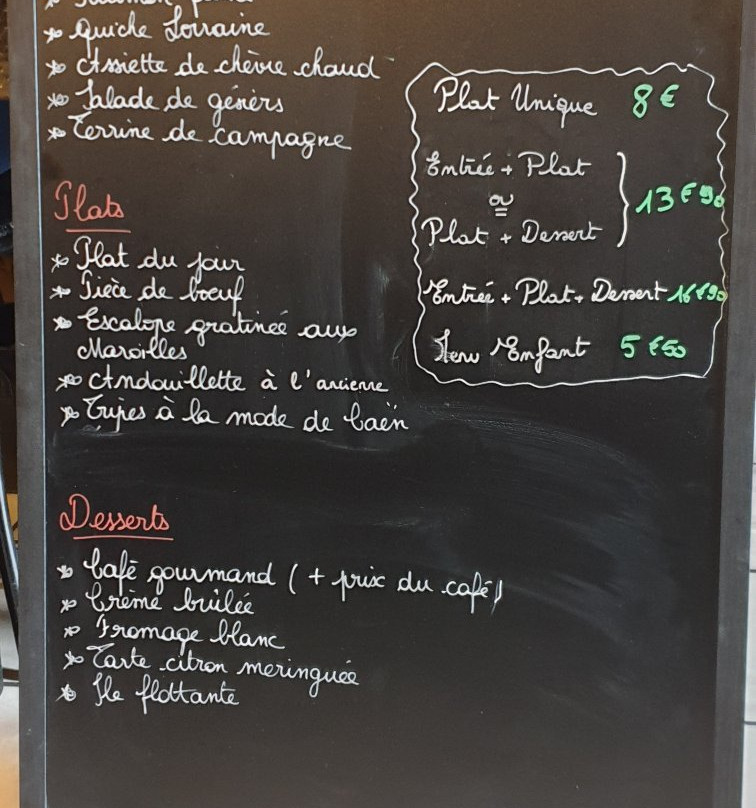 * Quiche Lorraine
* Assiette de chèvre chaud
* Salade de gésiers
* Terrine de campagne
Plats
* Plat du jour
* Pièce de boeuf
* Escalope gratinée aux
Maroilles
* Andouillette à l'ancienne
* Tripes à la mode de Caën
Desserts
* Café gourmand (+ prix du café)
* Crème brûlée
* Fromage blanc
* Tarte citron meringuée
* Ile flottante
Plat Unique 8€
Entrée + Plat
ou
Plat + Dessert
13€90
Entrée + Plat + Dessert 16€90
Menu Enfant 5€50